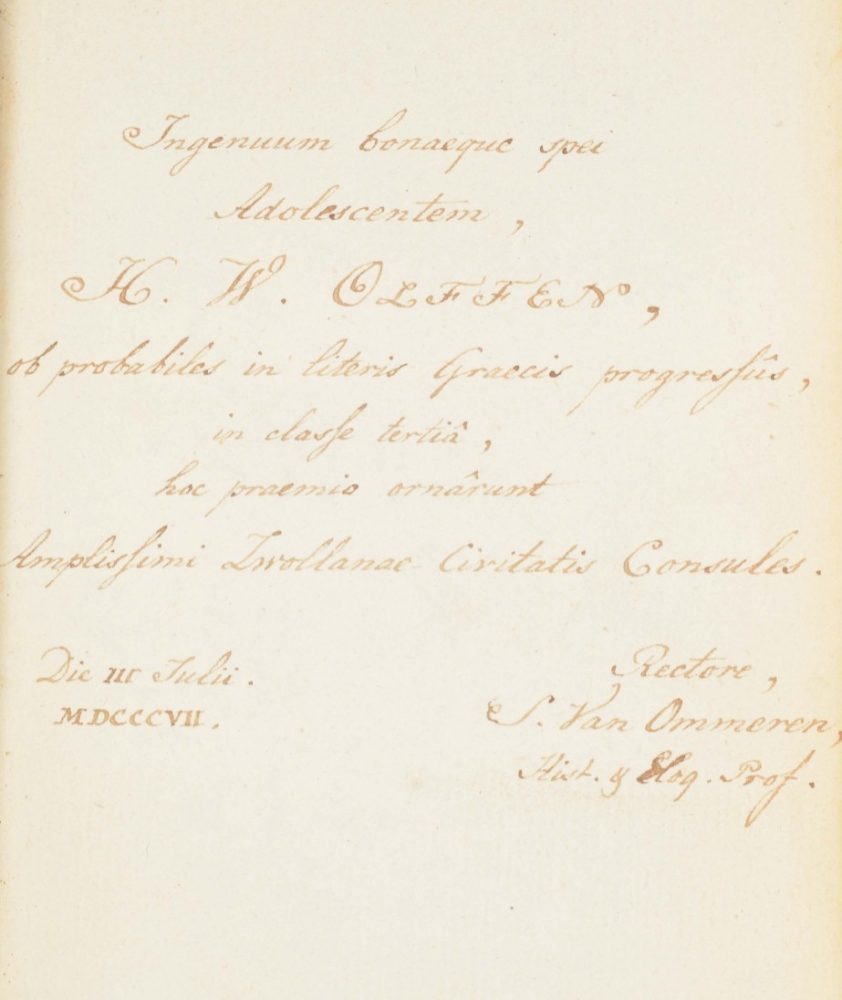 Ingenuum bonaeque spei
Adolescentem,
H. W. OLFFEN,
ob probabiles in literis Graecis progresſûs,
in claſse tertiâ,
hoc praemio ornârunt
Amplisſimi Zwollanae Civitatis Consules.
Die III Julii.
MDCCCVII.
Rectore,
S. Van Ommeren,
Hist. & Eloq. Prof.